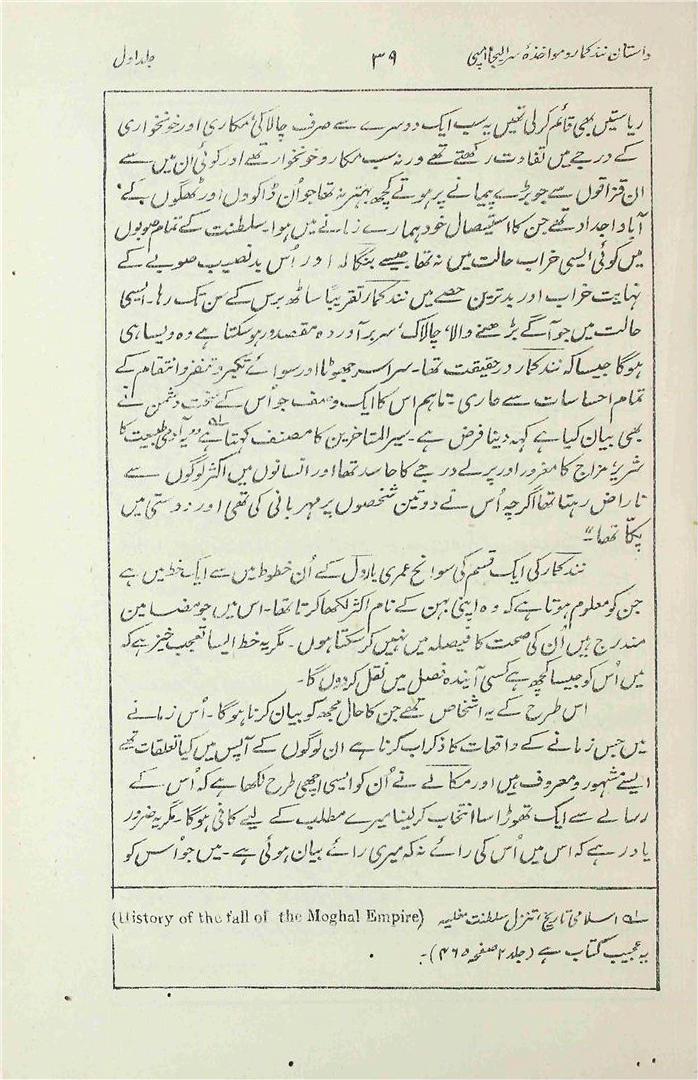 داستان نند کمار و مواخذۂ سر ایلیجا امپی ۳۹ جلد اول
ریاستیں بھی قائم کرلی تھیں یہ سب ایک دوسرے سے صرف چالاکی، مکاری اور خونخواری
کے درجے میں تفاوت رکھتے تھے ورنہ سب مکار و خونخوار تھے اور کوئی ان میں سے
ان قزاقوں سے جو بڑے پیمانے پر ہوتے کچھ بہتر نہ تھا جو اُن ڈاکووں اور ٹھگوں کے
آبا و اجداد تھے جن کا استیصال خود ہمارے زمانے میں ہوا۔ سلطنت کے تمام صوبوں
میں کوئی ایسی خراب حالت میں نہ تھا جیسے بنگالہ اور اُس بدنصیب صوبے کے
نہایت خراب اور بدترین حصے میں نند کمار تقریباً ساٹھ برس کے سن تک رہا۔ ایسی
حالت میں جو آگے بڑھنے والا، چالاک، سربرآوردہ مقصدور ہوسکتا ہے وہ ویسا ہی
ہوگا جیسا کہ نند کمار درحقیقت تھا۔ سراسر جھوٹا اور سوائے تکبر و تنفر و انتقام کے
تمام احساسات سے عاری۔ تاہم اس کا ایک وصف جو اُس کے سخت دشمن نے
بھی بیان کیا ہے کہہ دینا فرض ہے۔ سیر المتاخرین کا مصنف کہتا ہے "یہ آدمی طبیعت کا
شریر، مزاج کا مغرور اور پرلے درجے کا حاسد تھا اور انسانوں میں اکثر لوگوں سے
ناراض رہتا تھا اگرچہ اُس نے دو تین شخصوں پر مہربانی کی تھی اور دوستی میں
پکّا تھا"
نند کمار کی ایک قسم کی سوانح عمری یاردل کے اُن خطوط میں سے ایک خط میں ہے
جن کو معلوم ہوتا ہے کہ وہ اپنی بہن کے نام اکثر لکھا کرتا تھا۔ اس میں جو مضامین
مندرج ہیں اُن کی صحت کا فیصلہ میں نہیں کرسکتا ہوں۔ مگر یہ خط ایسا تعجب خیز ہے کہ
میں اُس کو جیسا کچھ ہے کسی آیندہ فصل میں نقل کردوں گا۔
اس طرح کے یہ اشخاص تھے جن کا حال مجھ کو بیان کرنا ہوگا۔ اُس زمانے
میں جس زمانے کے واقعات کا ذکر اب کرنا ہے ان لوگوں کے آپس میں کیا تعلقات تھے
ایسے مشہور و معروف ہیں اور مکالے نے اُن کو ایسی اچھی طرح لکھا ہے کہ اُس کے
رسالے سے ایک تھوڑا سا انتخاب کرلینا میرے مطلب کے لیے کافی ہوگا۔ مگر یہ ضرور
یاد رہے کہ اس میں اُس کی رائے نہ کہ میری رائے بیان ہوئی ہے۔ میں جو اُس کو
اسلامی تاریخ، تنزل سلطنت مغلیہ (History of the fall of the Moghal Empire)
یہ عجیب کتاب ہے (جلد ۲ صفحہ ۴۶۵)۔